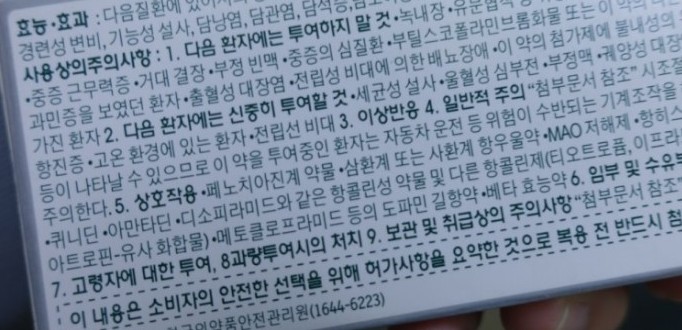 효능·효과 : 다음질환에
경련성 변비, 기능성 설사, 담낭염, 담관염, 담석증,
사용상의주의사항 : 1. 다음 환자에는 투여하지 말 것 •녹내장•유문협착
•중증 근무력증•거대 결장•부정 빈맥•중증의 심질환•부틸스코폴라민브롬화물 또는 이 약의
과민증을 보였던 환자•출혈성 대장염•전립성 비대에 의한 배뇨장애•이 약의 첨가제에 불내성의
가진 환자 2. 다음 환자에는 신중히 투여할 것 •세균성 설사•울혈성 심부전•부정맥•궤양성 대장
항진증•고온 환경에 있는 환자•전립선 비대 3. 이상반응 4. 일반적 주의 "첨부문서 참조" 시조절
등이 나타날 수 있으므로 이 약을 투여중인 환자는 자동차 운전 등 위험이 수반되는 기계조작을
주의한다. 5. 상호작용 •페노치아진계 약물•삼환계 또는 사환계 항우울약•MAO 저해제•항히스
•퀴니딘•아만타딘•디소피라미드와 같은 항콜린성 약물 및 다른 항콜린제(티오트로퓸, 이프라
아트로핀-유사 화합물)•메토클로프라미드 등의 도파민 길항약•베타 효능약 6. 임부 및 수유부
7. 고령자에 대한 투여, 8과량투여시의 처치 9. 보관 및 취급상의 주의사항 "첨부문서 참조"
이 내용은 소비자의 안전한 선택을 위해 허가사항을 요약한 것으로 복용 전 반드시 첨
의약품안전관리원(1644-6223)